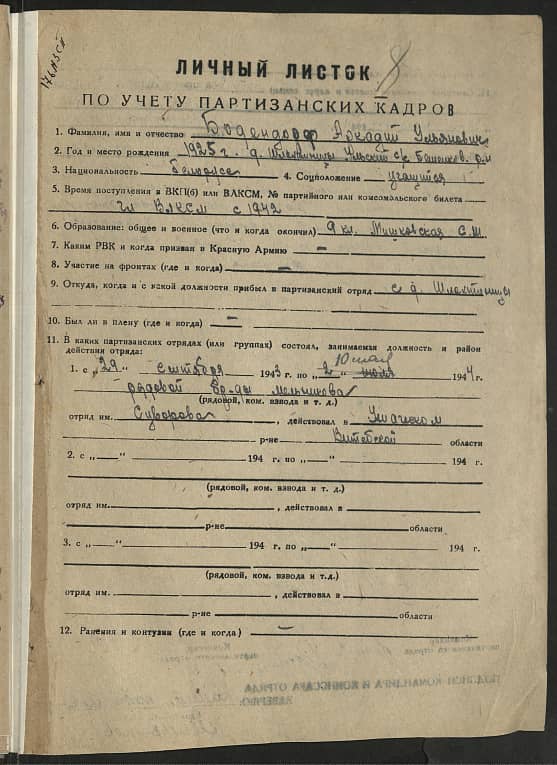 ЛИЧНЫЙ ЛИСТОК 8
ПО УЧЕТУ ПАРТИЗАНСКИХ КАДРОВ
1. Фамилия, имя и отчество Бодендорф Аркадий Ульянович
2. Год и место рождения 1925 г. д. Ульский с/с р-н
3. Национальность белорус 4. Соцположение учащийся
5. Время поступления в ВКП(б) или ВЛКСМ, № партийного или комсомольского билета
чл ВЛКСМ с 1942
6. Образование: общее и военное (что и когда окончил) 9 кл. С.Ш.
7. Каким РВК и когда призван в Красную Армию —
8. Участие на фронтах (где и когда) —
9. Откуда, когда и с какой должности прибыл в партизанский отряд с д.
10. Был ли в плену (где и когда) —
11. В каких партизанских отрядах (или группах) состоял, занимаемая должность и район
действия отряда:
10 мая
1. с „29" сентября 1943 г. по „2" июля 1944 г.
рядовой бр-ды Мельникова
(рядовой, ком. взвода и т. д.)
отряд им. Суворова, действовал в Ушачском
р-не Витебской области
2. с „—" 194 г. по „—" 194 г.
(рядовой, ком. взвода и т. д.)
отряд им. , действовал в
р-не области
3. с „—" 194 г. по „—" 194 г.
(рядовой, ком. взвода и т.д.)
отряд им. , действовал в
р-не области
12. Ранения и контузии (где и когда) —